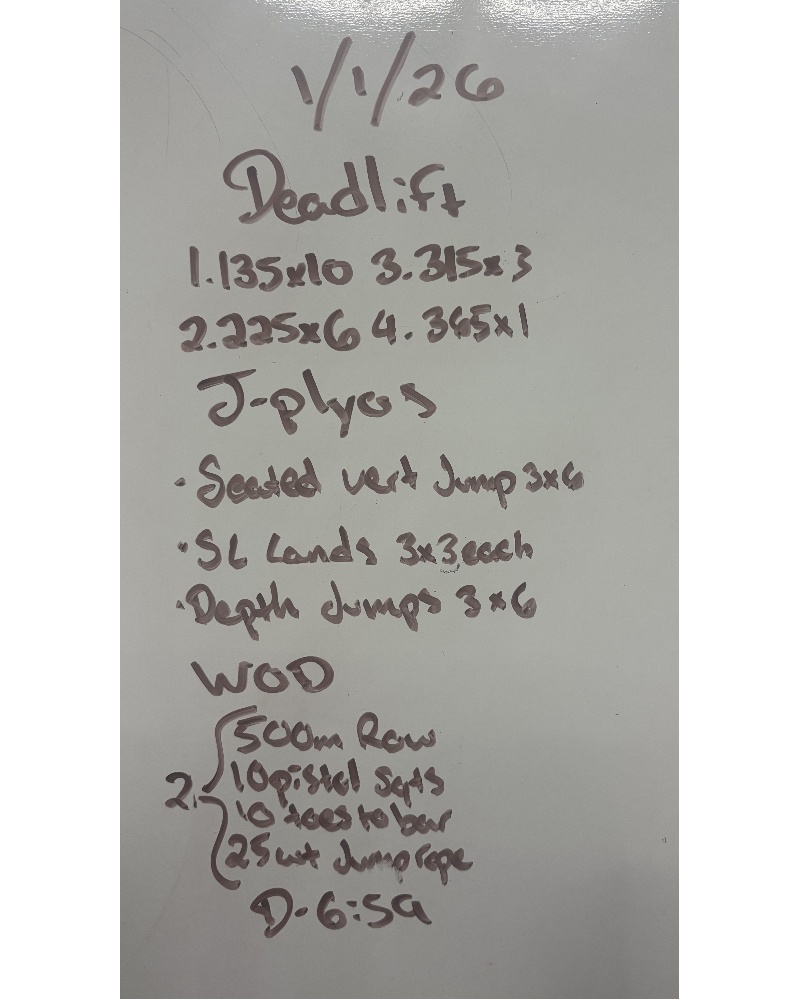 1/1/26
Deadlift
1.135x10 3.315x3
2.225x6 4.365x1
J-plyos
· Seated vert Jump 3x6
· SL Lands 3x3 each
· Depth Jumps 3x6
WOD
500m Row
10 pistol Sqts
2.
10 toes to bar
25 wt Jump rope
D-6:59